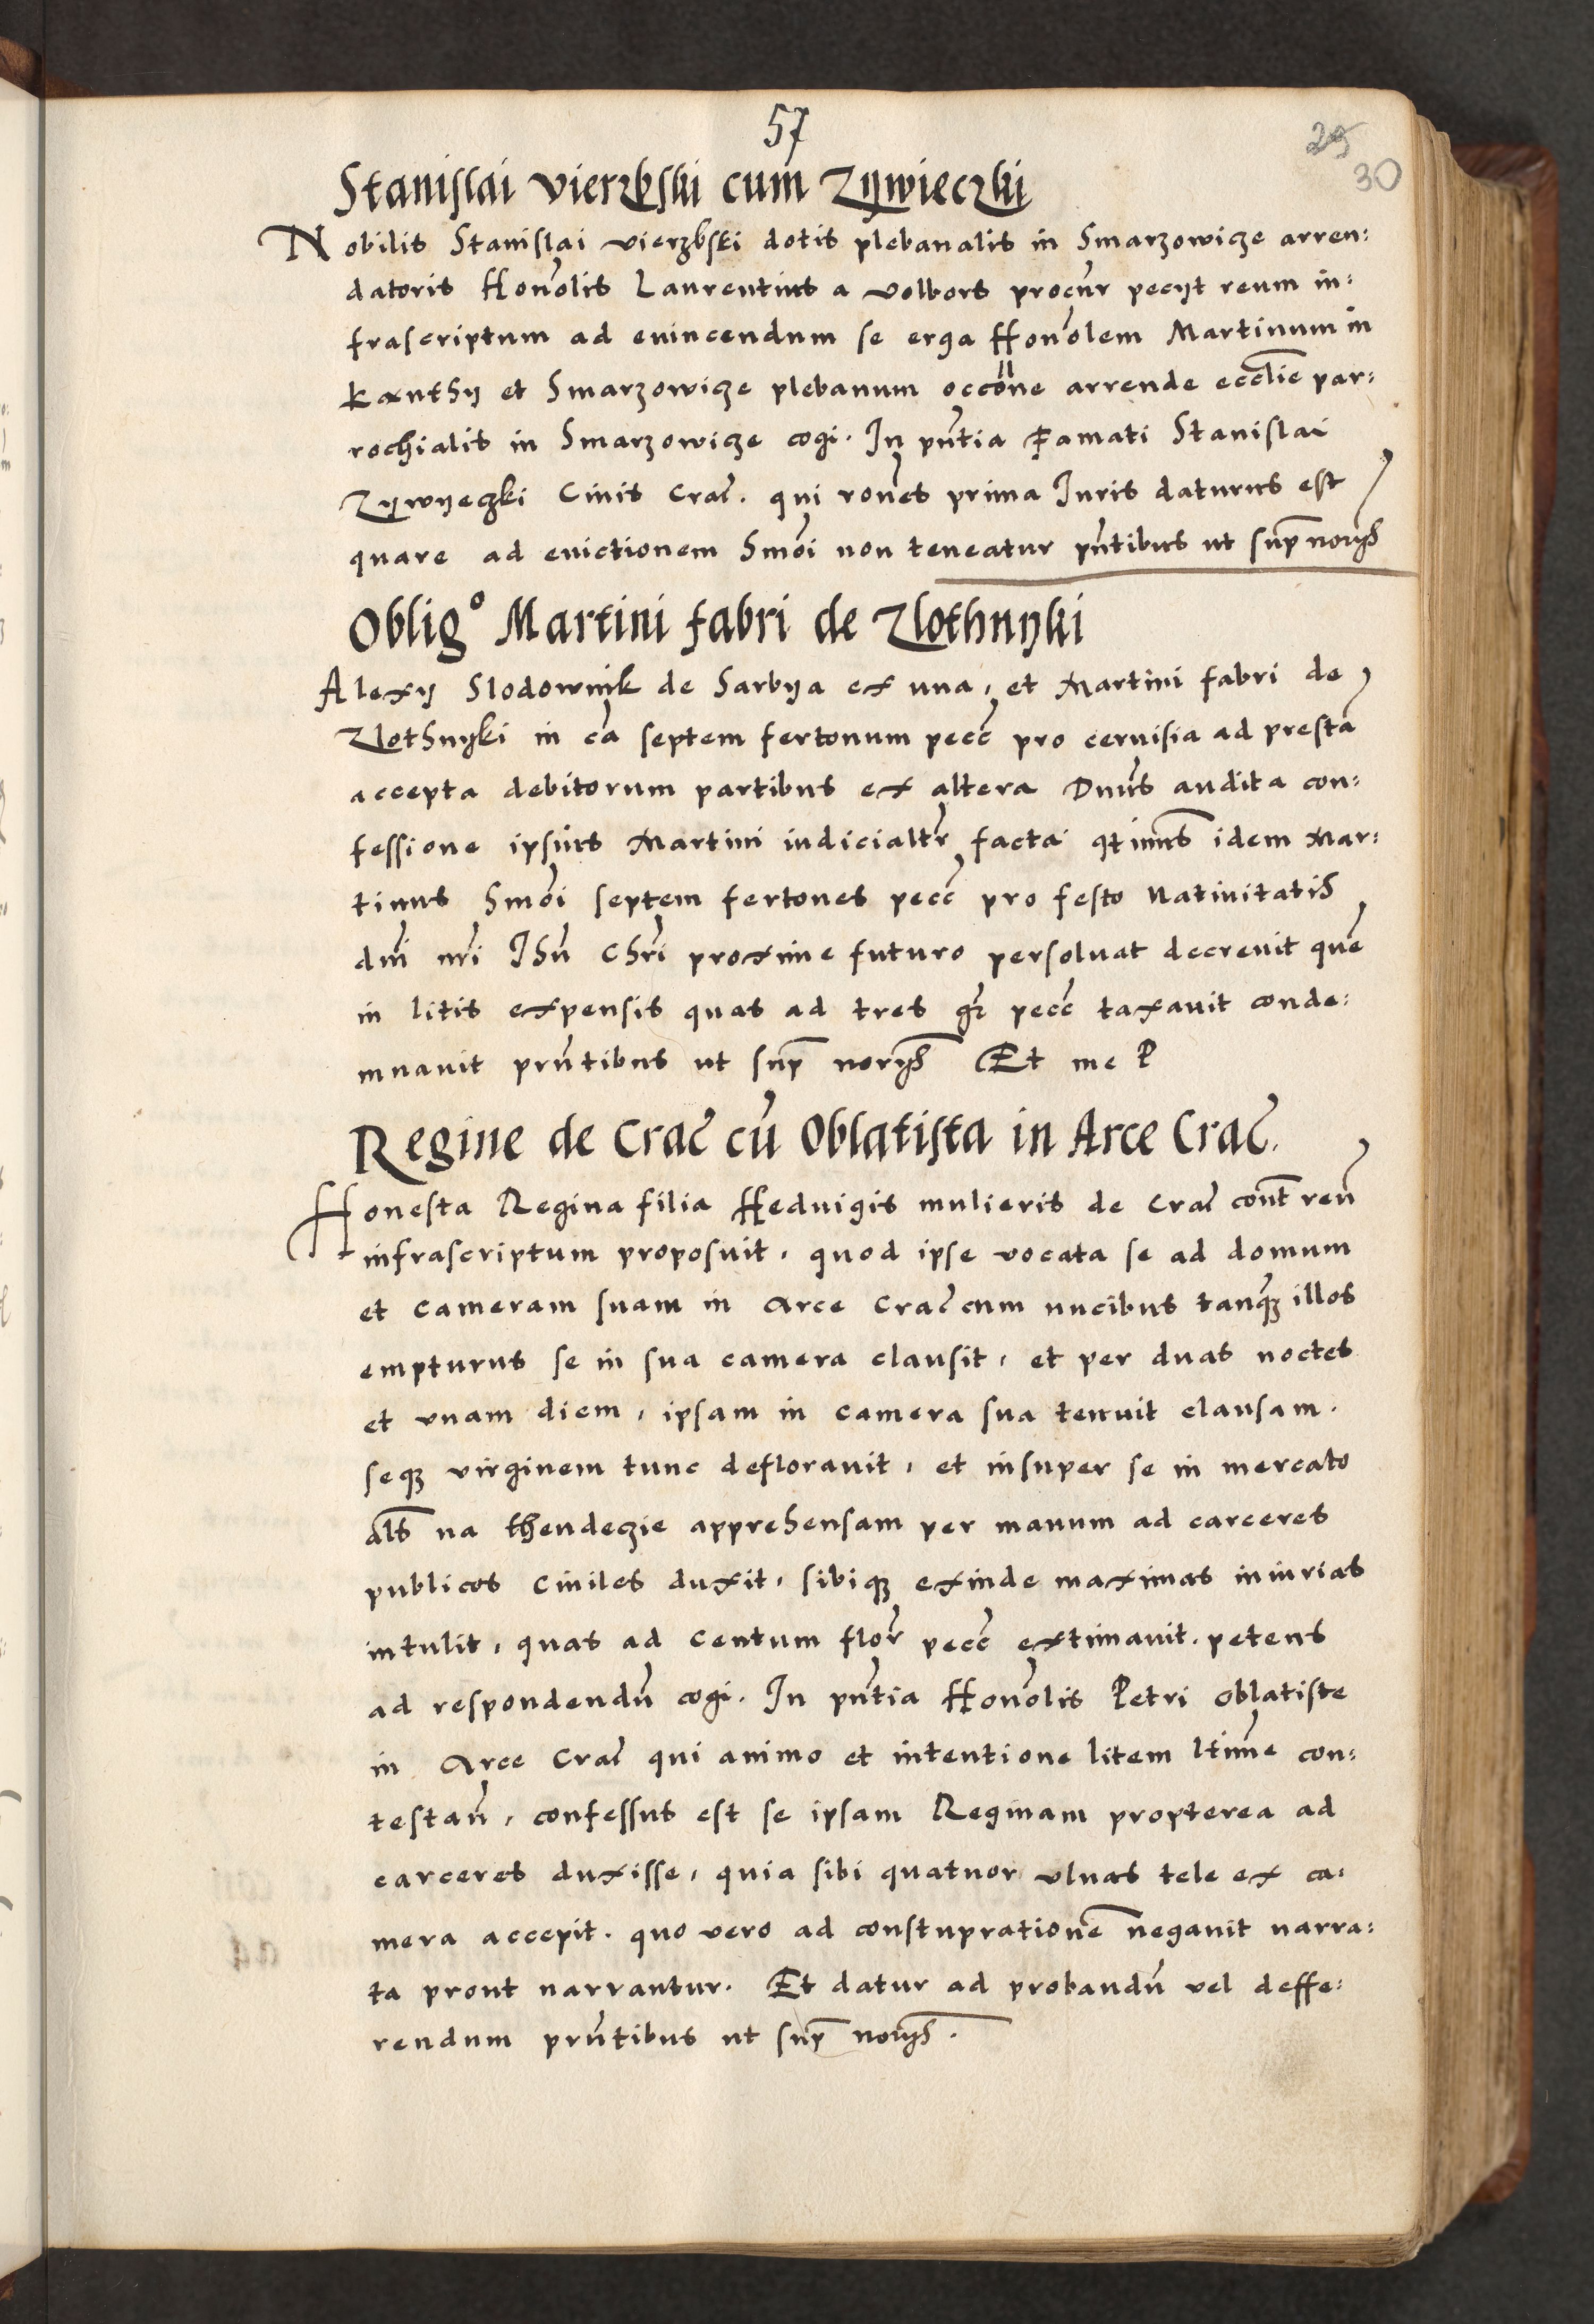 57
25
30
Stanislai vierzbski cum Zÿwieczki
Nobilis Stanislai vierzbski dotis plebanalis in Smarzowicze arren:
datoris Honolis Laurentius a Volbors procur pecÿt reum in:
frascriptum ad evincendum se erga Honolem Martinum in
Kanthÿ et Smarzowicze plebanum occone arrende ecclie par:
rochialis in Smarzowicze cogi. In pntia Famati Stanislai
Zÿwÿeczki Civis Crac. qui rones prima Iuris daturus est
quare ad evictionem Smoi non teneatur pntibus ut sup norÿs
Oblig° Martini fabri de Zlothnÿki
Alexÿ Slodownik de Sarbÿa ex una, et Martini fabri de
Zlothnÿki in ca septem fertonum pecc pro cervisia ad presta
accepta debitorum partibus ex altera Dnus audita con:
fessione ipsius Martini iudicialtr facta qtinus idem Mar:
tinus Smoi septem fertones pecc pro festo Nativitatis
dni nri Ihu Chri proxime futuro persolvat decrevit que
in litis expensis quas ad tres gr pecc taxavit conde:
mnavit prntibus ut sup norÿs Et me P
Regine de Crac cu Oblatista in Arce Crac.
Honesta Regina filia Hedvigis mulieris de Crac cont reu
infrascriptum proposuit, quod ipse vocata se ad domum
et cameram suam in Arce Crac cum nucibus tanqȝ illos
empturus se in sua camera clausit, et per duas noctes
et unam diem, ipsam in camera sua tenuit clausam.
seqȝ virginem tunc defloravit, et insuper se in mercato
als na thendeczie apprehensam per manum ad carceres
publicos Civiles duxit, sibiqȝ exinde maximas iniurias
intulit, quas ad Centum flor pecc extimavit. petens
ad respondendu cogi. In pntia Honolis Petri oblatiste
in Arce Crac qui animo et intentione litem ltime con:
testan, confessus est se ipsam Reginam propterea ad
carceres duxisse, quia sibi quatuor ulnas tele ex ca:
mera accepit. quo vero ad constupratione negavit narra:
ta prout narrantur. Et datur ad probandu vel deffe:
rendum prntibus ut sup norÿs.